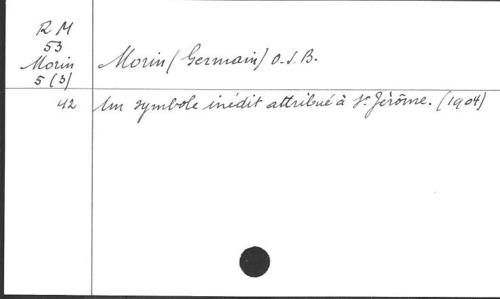 R M
53
Morin
5 (3)
Morin (Germain) O.S.B.
42
Un symbole inédit attribué à St Jérôme. (1904)